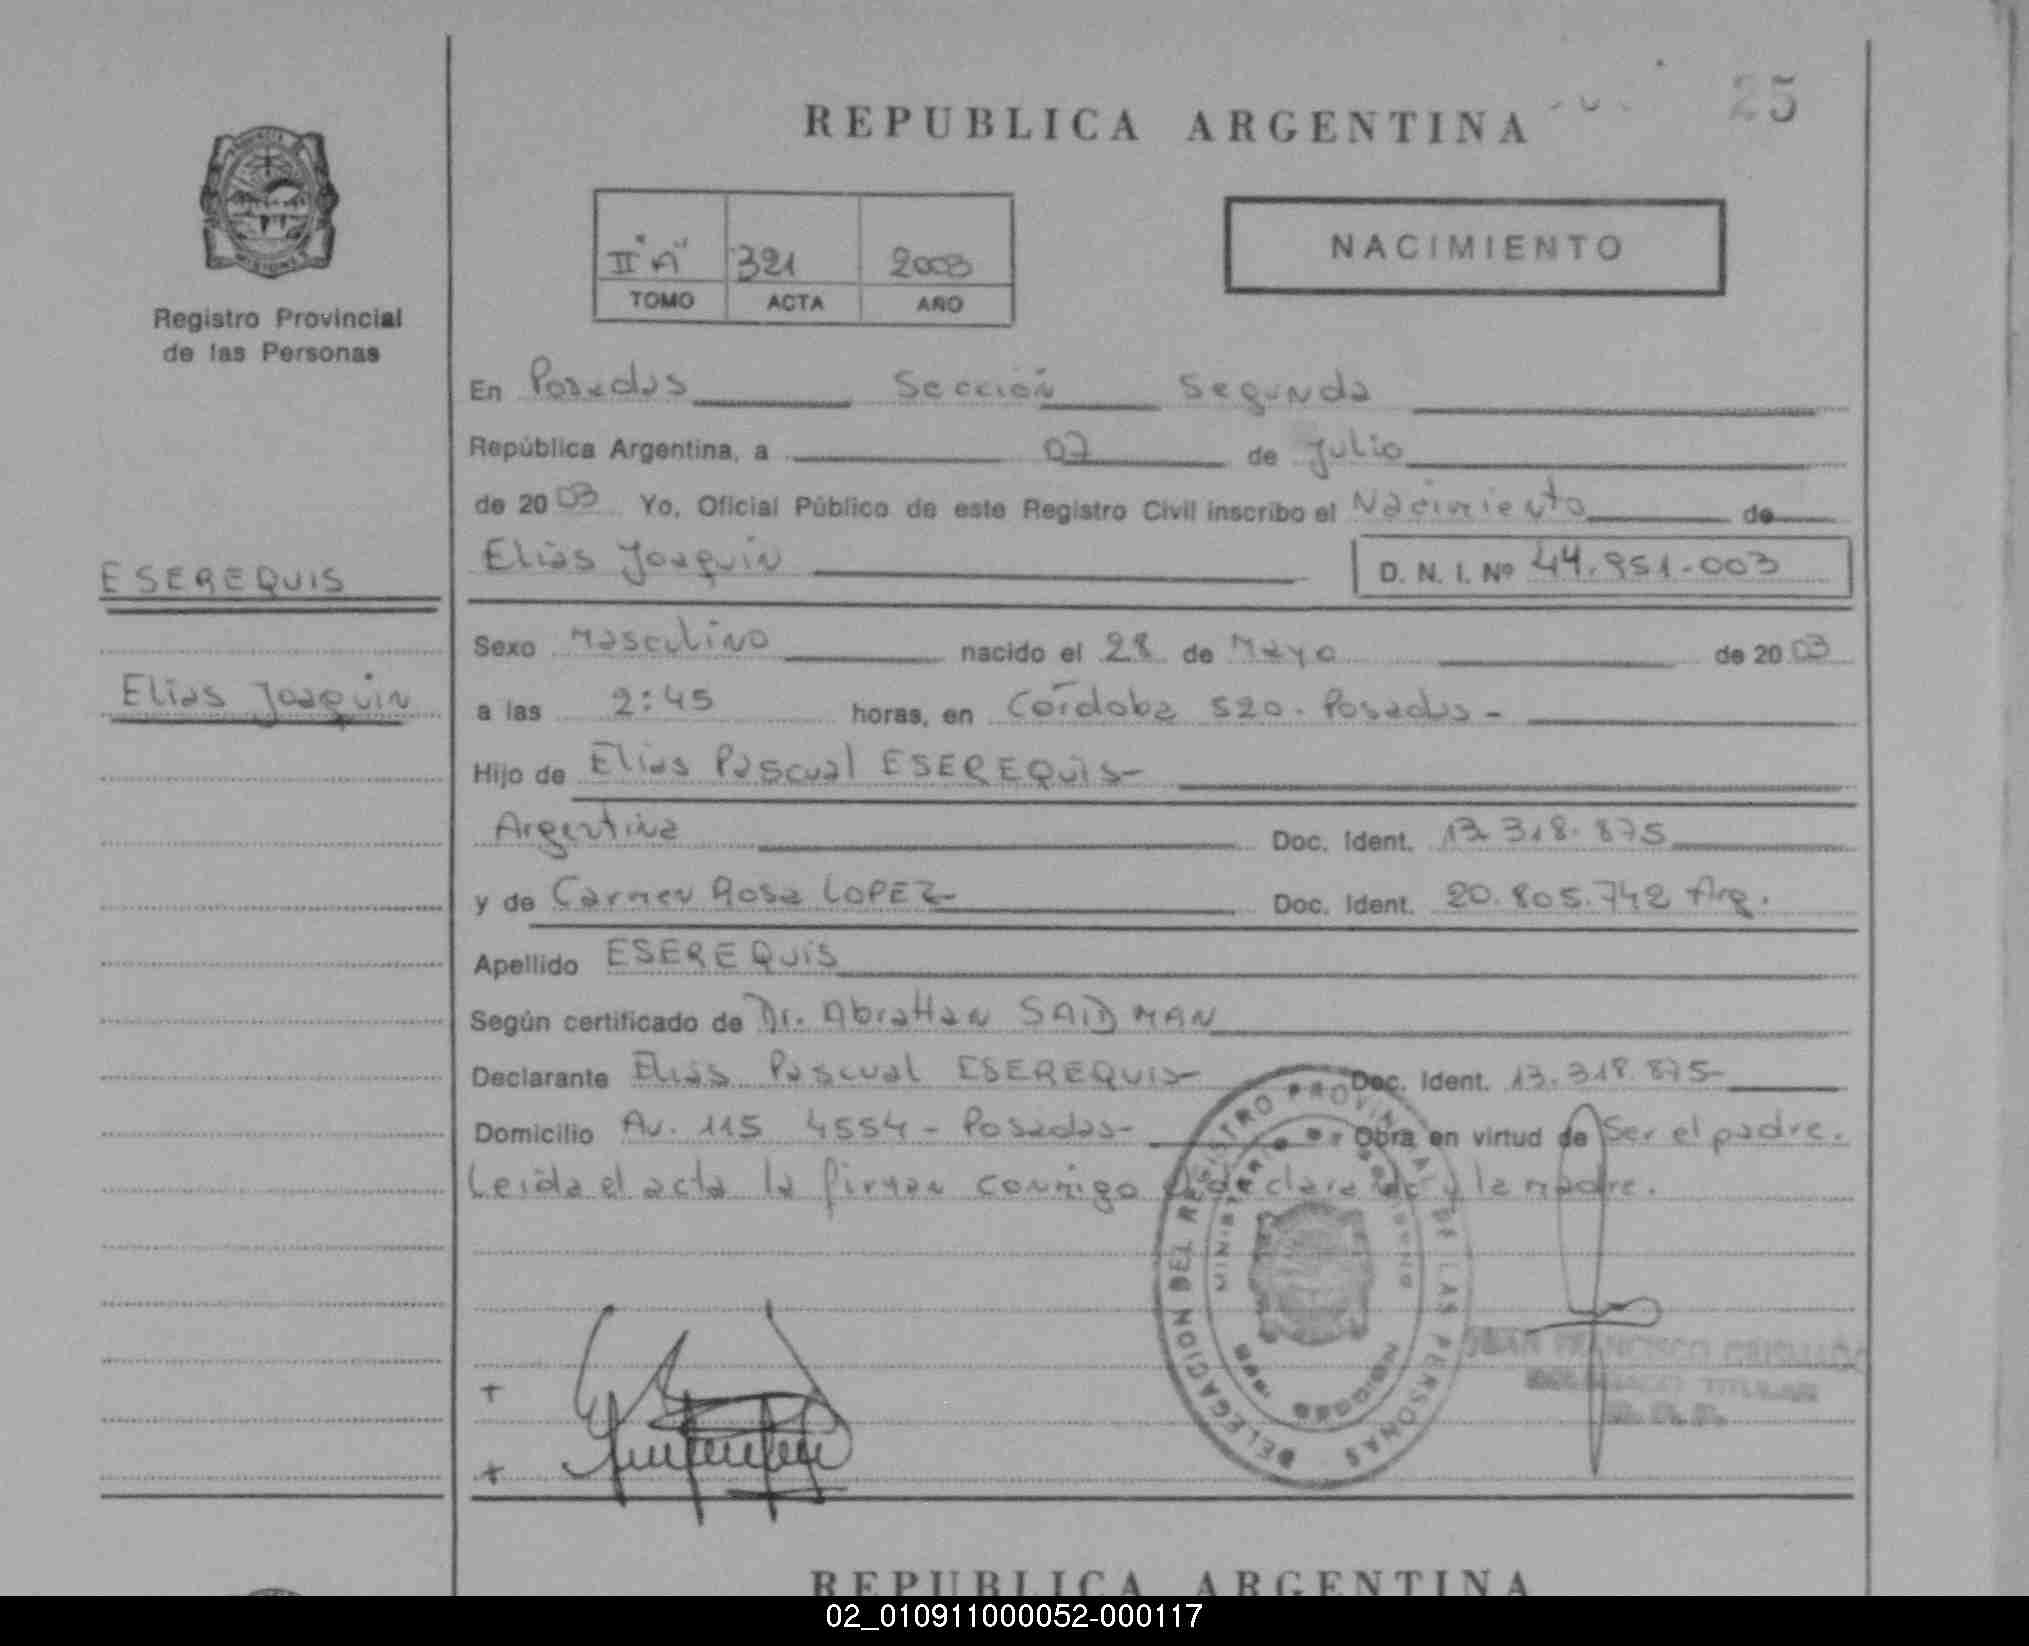 25
REPUBLICA ARGENTINA
PROVINCIA
MISIONES
Registro Provincial
de las Personas
II "A" 321 2003
TOMO ACTA AÑO
NACIMIENTO
En Posadas Sección Segunda
República Argentina, a 07 de Julio
de 2003 Yo, Oficial Público de este Registro Civil inscribo el Nacimiento de
Elias Joaquin D. N. I. Nº 44.951.003
ESEREQUIS
Sexo Masculino nacido el 28 de Mayo de 2003
Elias Joaquin
a las 2:45 horas, en Córdoba 520. Posadas-
Hijo de Elias Pascual ESEREQUIS-
Argentina Doc. Ident. 13.318.875
y de Carmen Rosa LOPEZ- Doc. Ident. 20.805.742 Arg.
Apellido ESEREQUIS
Según certificado de Dr. AbraHan SAIDMAN
Declarante Elias Pascual ESEREQUIS- Doc. Ident. 13.318.875-
Domicilio Av. 115 4554- Posadas- Obra en virtud de Ser el padre.
Leida el acta la firman conmigo declarante y la madre.
DELEGACION DEL REGISTRO PROVINCIAL DE LAS PERSONAS
MINISTERIO DE GOBIERNO
JUAN FRANCISCO
DELEGADO TITULAR
REPUBLICA ARGENTINA
02_010911000052-000117